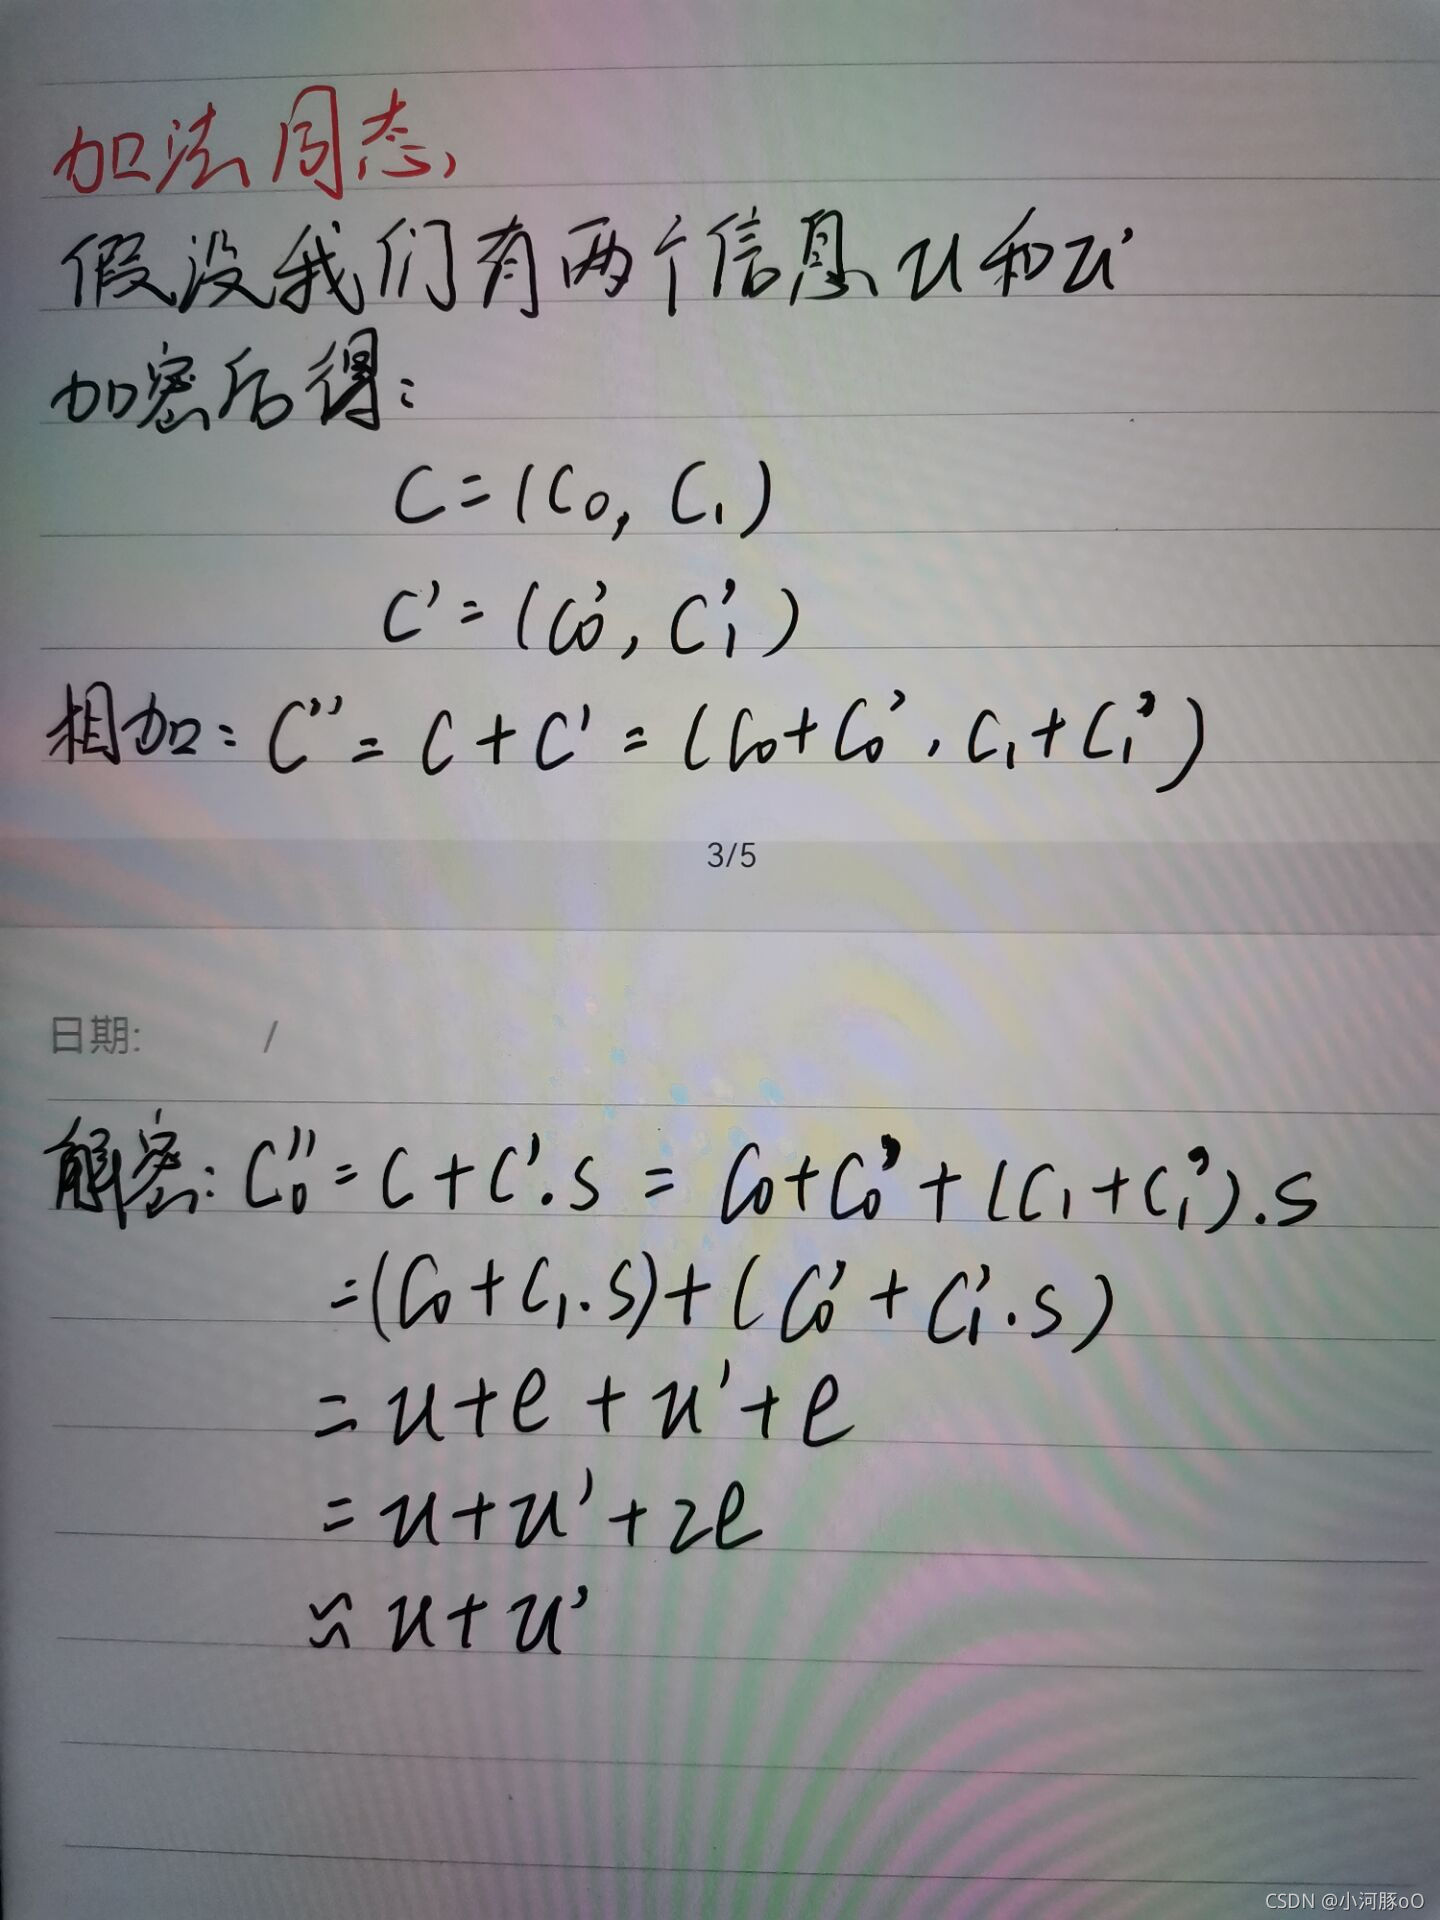 加法同态,
假设我们有两个信息 u 和 u'
加密后得:
C=(C₀, C₁)
C'=(C₀', C₁')
相加: C''=C+C'=(C₀+C₀', C₁+C₁')
3/5
日期: /
解密: C₀''=C+C'.S=C₀+C₀'+(C₁+C₁').S
=(C₀+C₁.S)+(C₀'+C₁'.S)
=u+e+u'+e
=u+u'+2e
≈u+u'
CSDN @小河豚oO